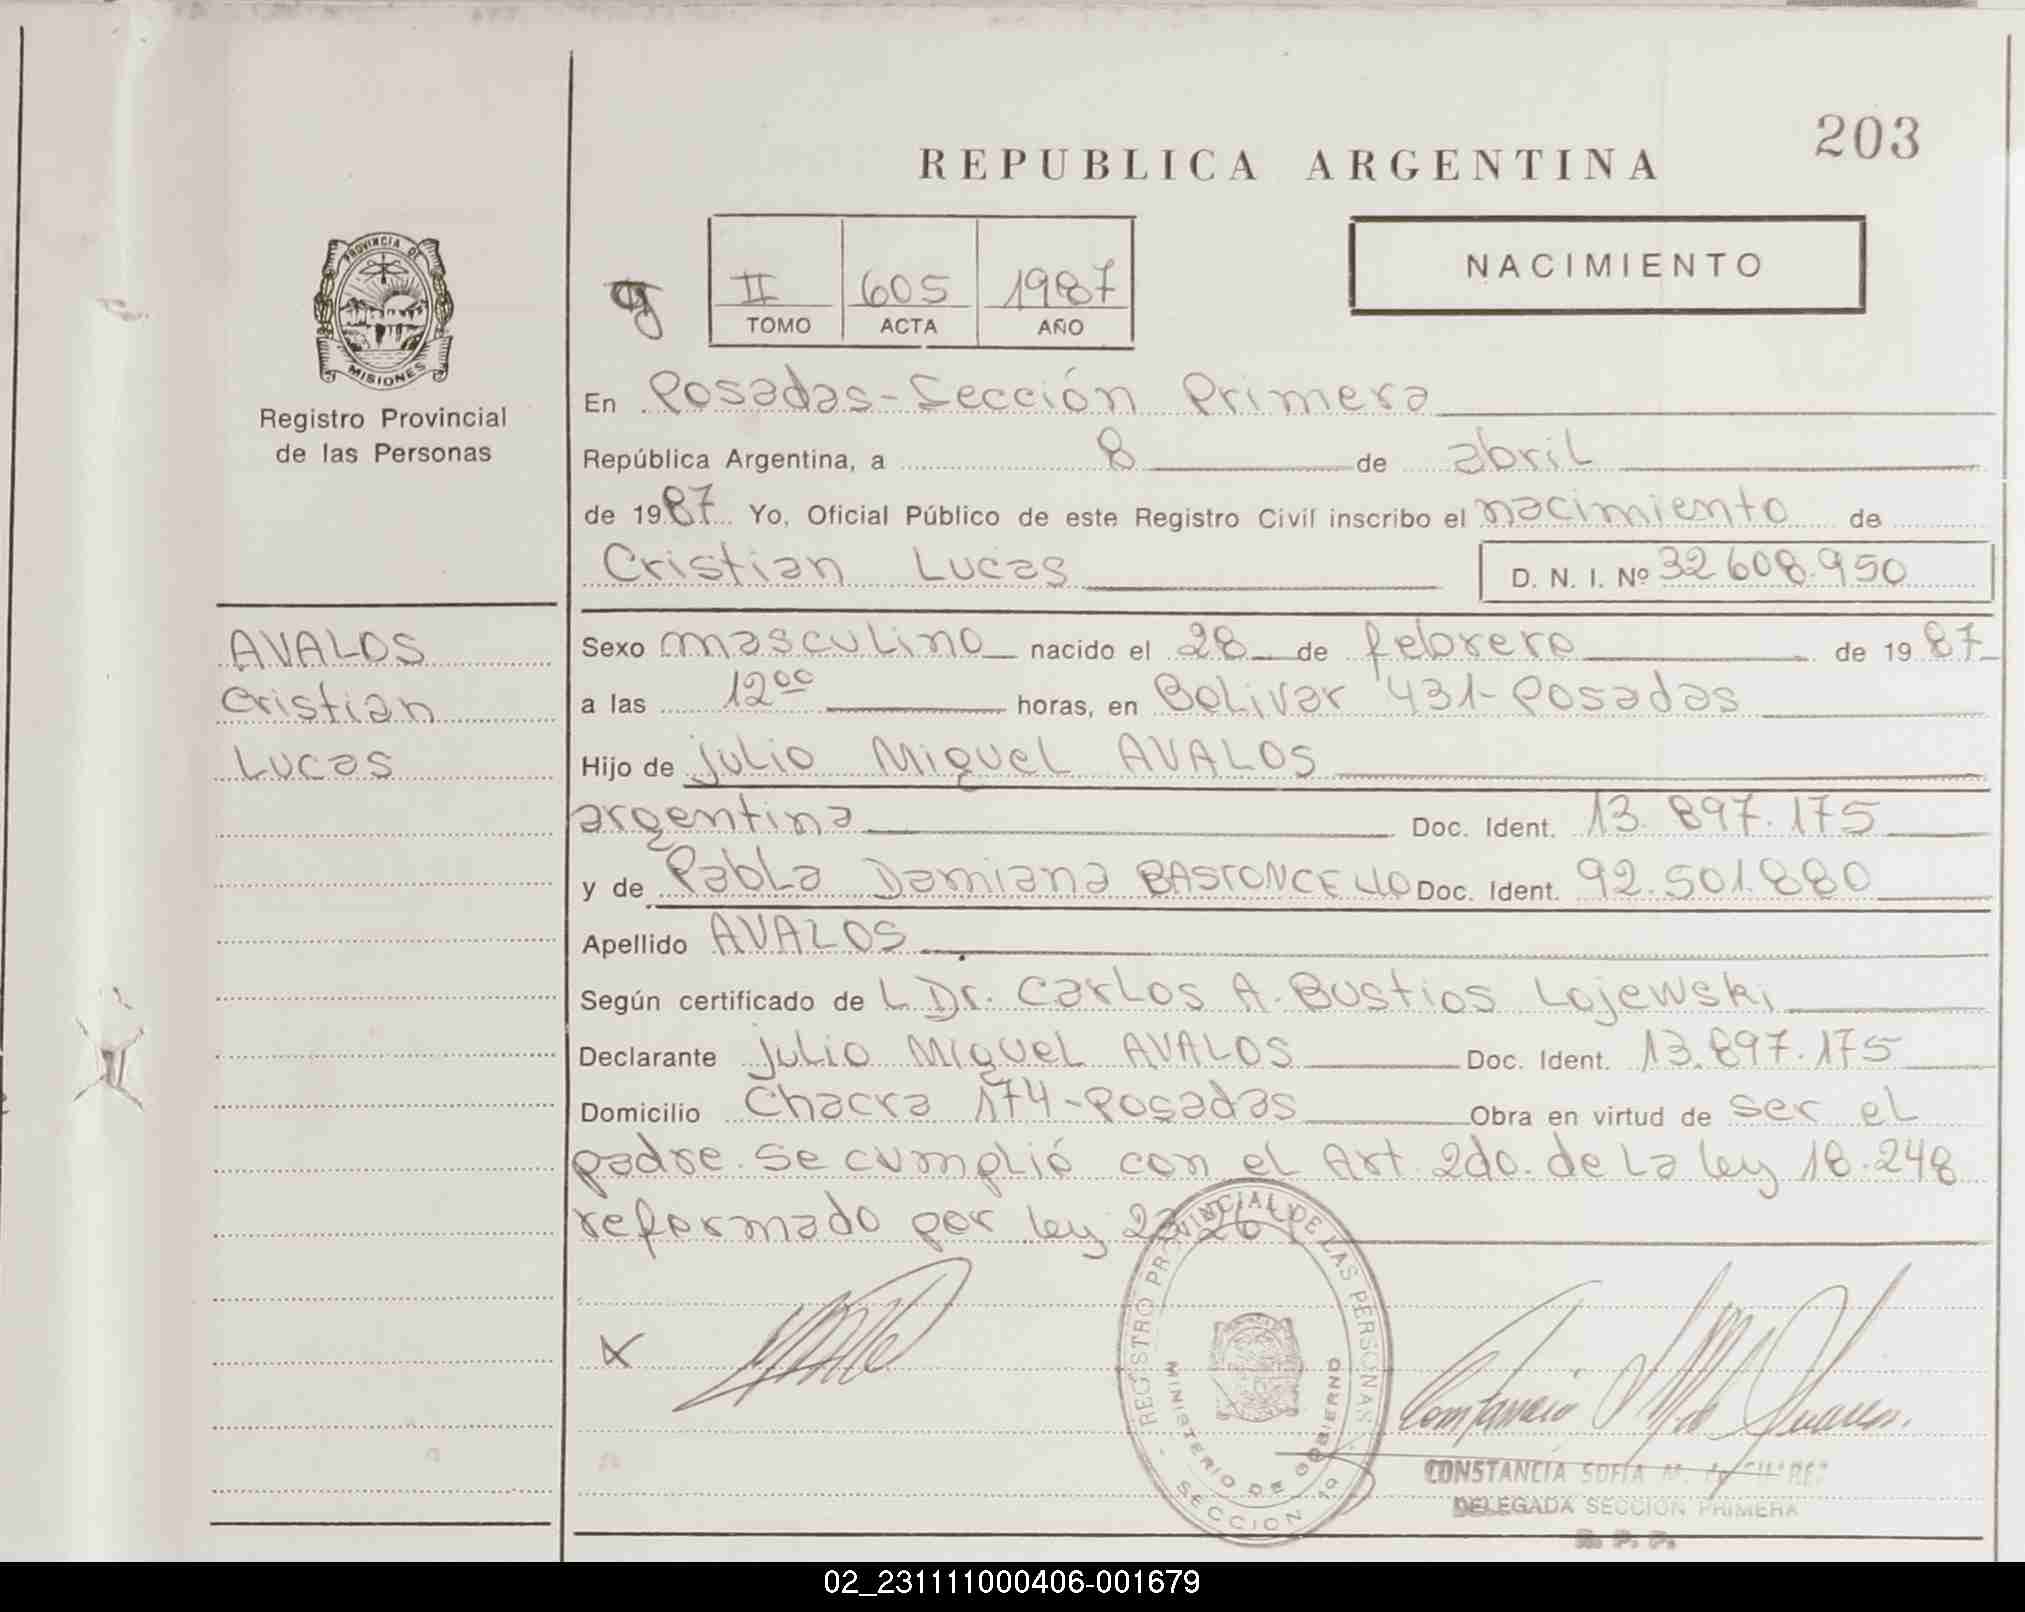 203
REPUBLICA ARGENTINA
NACIMIENTO
II 605 1987
TOMO ACTA AÑO
PROVINCIA DE
MISIONES
Registro Provincial
de las Personas
AVALOS
Cristian
Lucas
En Posadas-Sección Primera
República Argentina, a 8 de abril
de 1987 Yo, Oficial Público de este Registro Civil inscribo el nacimiento de
Cristian Lucas D. N. I. Nº 32608.950
Sexo masculino nacido el 28 de febrero de 1987
a las 12⁰⁰ horas, en Bolivar 431-Posadas
Hijo de Julio Miguel AVALOS
argentina Doc. Ident. 13.897.175
y de Pabla Damiana BASTONCELLO Doc. Ident. 92.501.880
Apellido AVALOS
Según certificado de L Dr. Carlos A. Bustios Lojewski
Declarante Julio Miguel AVALOS Doc. Ident. 13.897.175
Domicilio Chacra 174-Posadas Obra en virtud de ser el
padre. Se cumplió con el Art. 2do. de La ley 18.248
reformado por ley
REGISTRO PROVINCIAL DE LAS PERSONAS
MINISTERIO DE GOBIERNO
SECCION 1º
CONSTANCIA SOFIA M. de
DELEGADA SECCION PRIMERA
R. P. P.
02_231111000406-001679